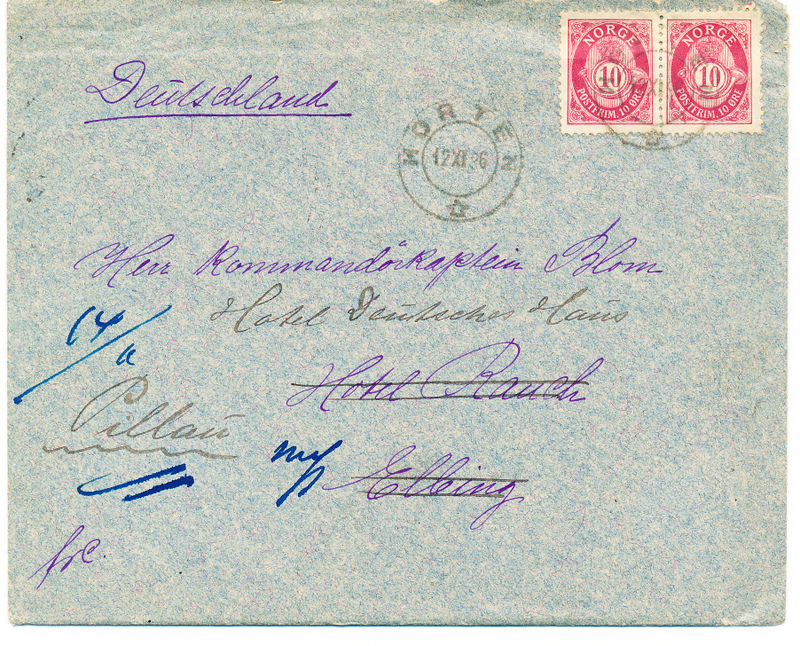 NORGE NORGE
10 10
POSTFRIM. 10 ØRE POSTFRIM. 10 ØRE
Deutschland
HORTEN
12 XI 96
Herr Kommandörkaptein Blom
Hotel Deutsches Haus
14/11
Hotel Rauch
Pillau
Elbing
frc.